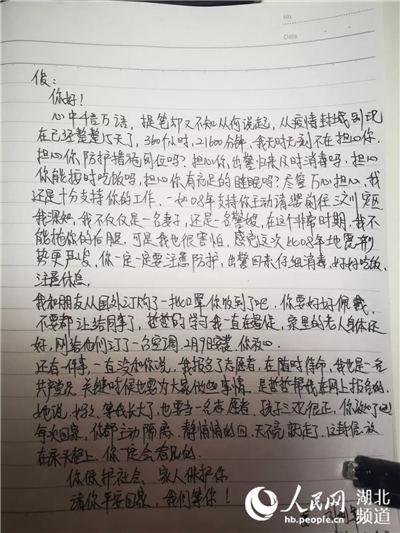 No.
Date
俊：
你好！
心中千言万语，提笔却又不知从何说起，从疫情封城到现
在已经整整15天了，360小时，21600分钟，我无时无刻不在担心你
担心你防护措施到位吗？担心你出警归来及时消毒吗？担心
你能按时吃饭吗，担心你有充足的睡眠吗？尽管万心担心，我
还是十分支持你的工作，一如08年支持你主动请缨前往汶川灾区
我深知，我不仅仅是一名妻子，还是一名警嫂，在这非常时期，我不
能拖你的后腿，可是我也很害怕，感觉这次比08年地震形
势更严峻，你一定一定要注意防护，出警回来仔细消毒，好好吃饭
注意休息。
我和朋友从国外订购了一批口罩你收到了吧，你要好好佩戴
不要都让给同事了，哲哲的学习我一直在督促，家里的老人身体还
好，刚给他们订了一台空调，2月9日安装，你放心
还有一件事，一直没和你说，我报名了志愿者，在随时待命，我也是一名
共产党员，关键时候也要为大家做些事情，是哲哲帮我在网上报名的
她说，妈妈，等我长大了，也要当一名志愿者，孩子三观很正，你放心吧
每次回家，你都主动隔离，静悄悄的回，天不亮就走了，这封信放
在床头柜上，你一定会看见的。
你保护社会，家人保护你
请你平安回家，我们等你！
人民网 湖北
hb.people.cn 频道